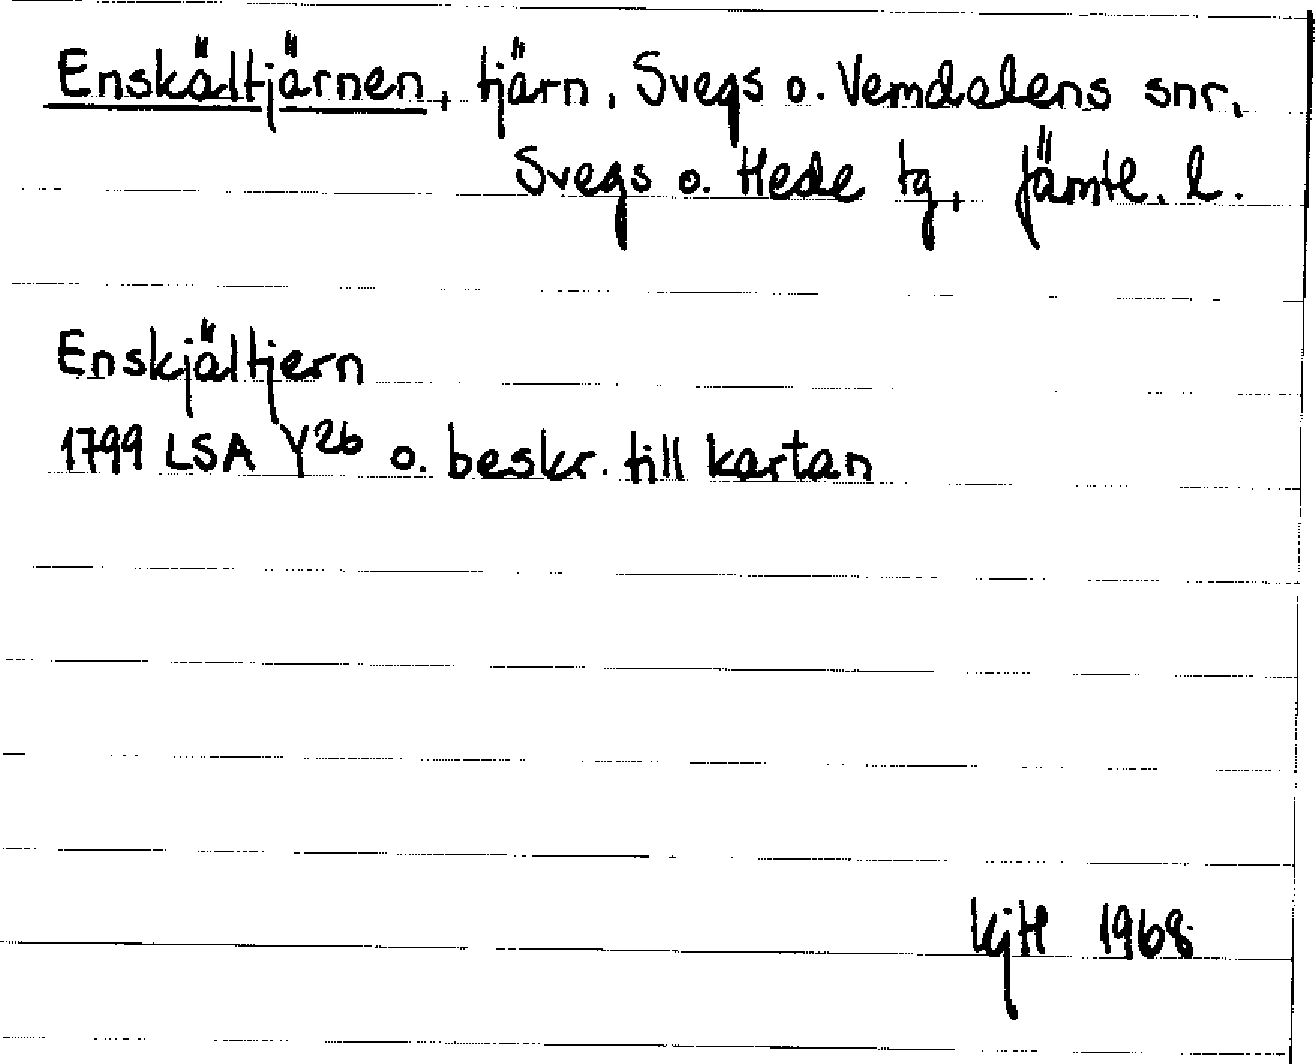 Enskältjärnen, tjärn, Svegs o. Vemdalens snr,
Svegs o. Hede tg, Jämtl. l.
Enskjältjern
1799 LSA Y26 o. beskr. till kartan
KjH 1968